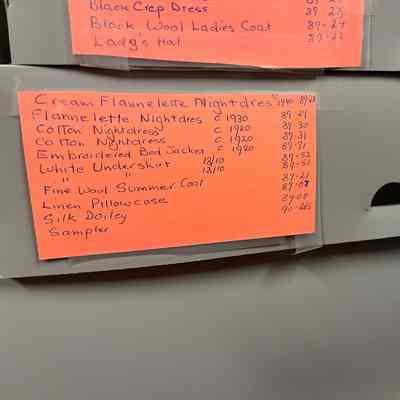 Black Crep Dress 89-2
Black Wool Ladies Coat 89-24
Lady's Hat 89-22
Cream Flannelette Nightdress 1940 89-28
Flannelette Nightdres c 1930 89-29
Cotton Nightdress c 1920 89-30
Cotton Nightdress c 1920 89-31
Embroidered Bed Jacket c 1920 89-71
White Underskirt 13/10 89-52
" " 13/10 89-51
Fine Wool Summer Coat 89-21
Linen Pillowcase
Silk Doiley
Sampler 90-265